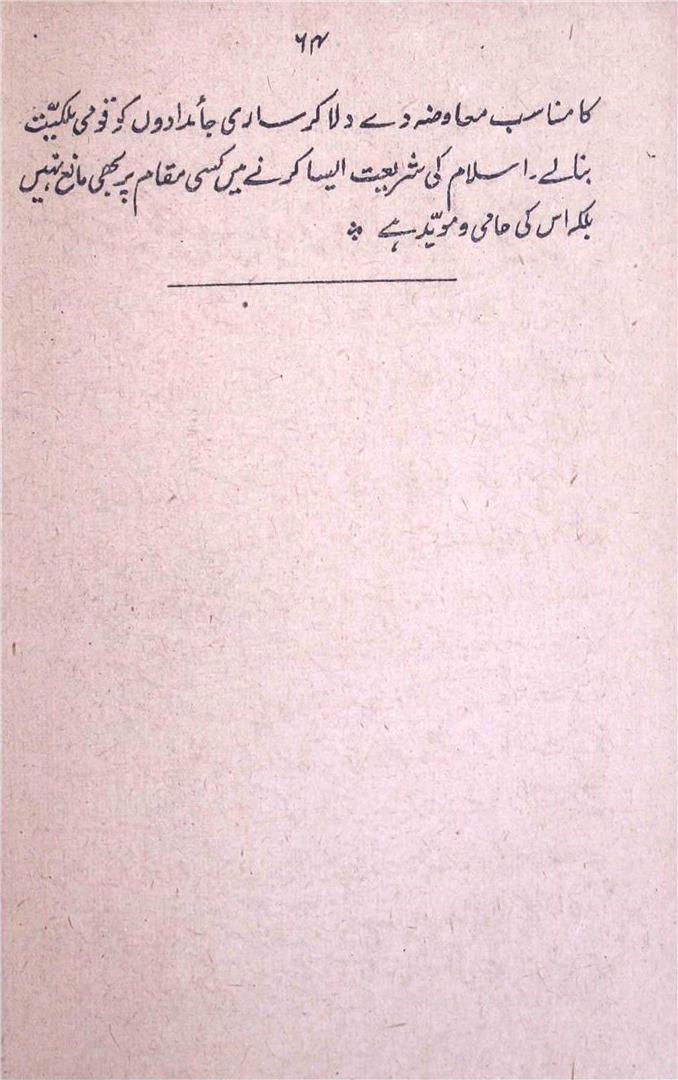 ۶۴
کا مناسب معاوضہ دے دلا کر ساری جائدادوں کو قومی ملکیّت
بنالے۔ اسلام کی شریعت ایسا کرنے میں کسی مقام پر بھی مانع نہیں
بلکہ اس کی حامی و مویّد ہے